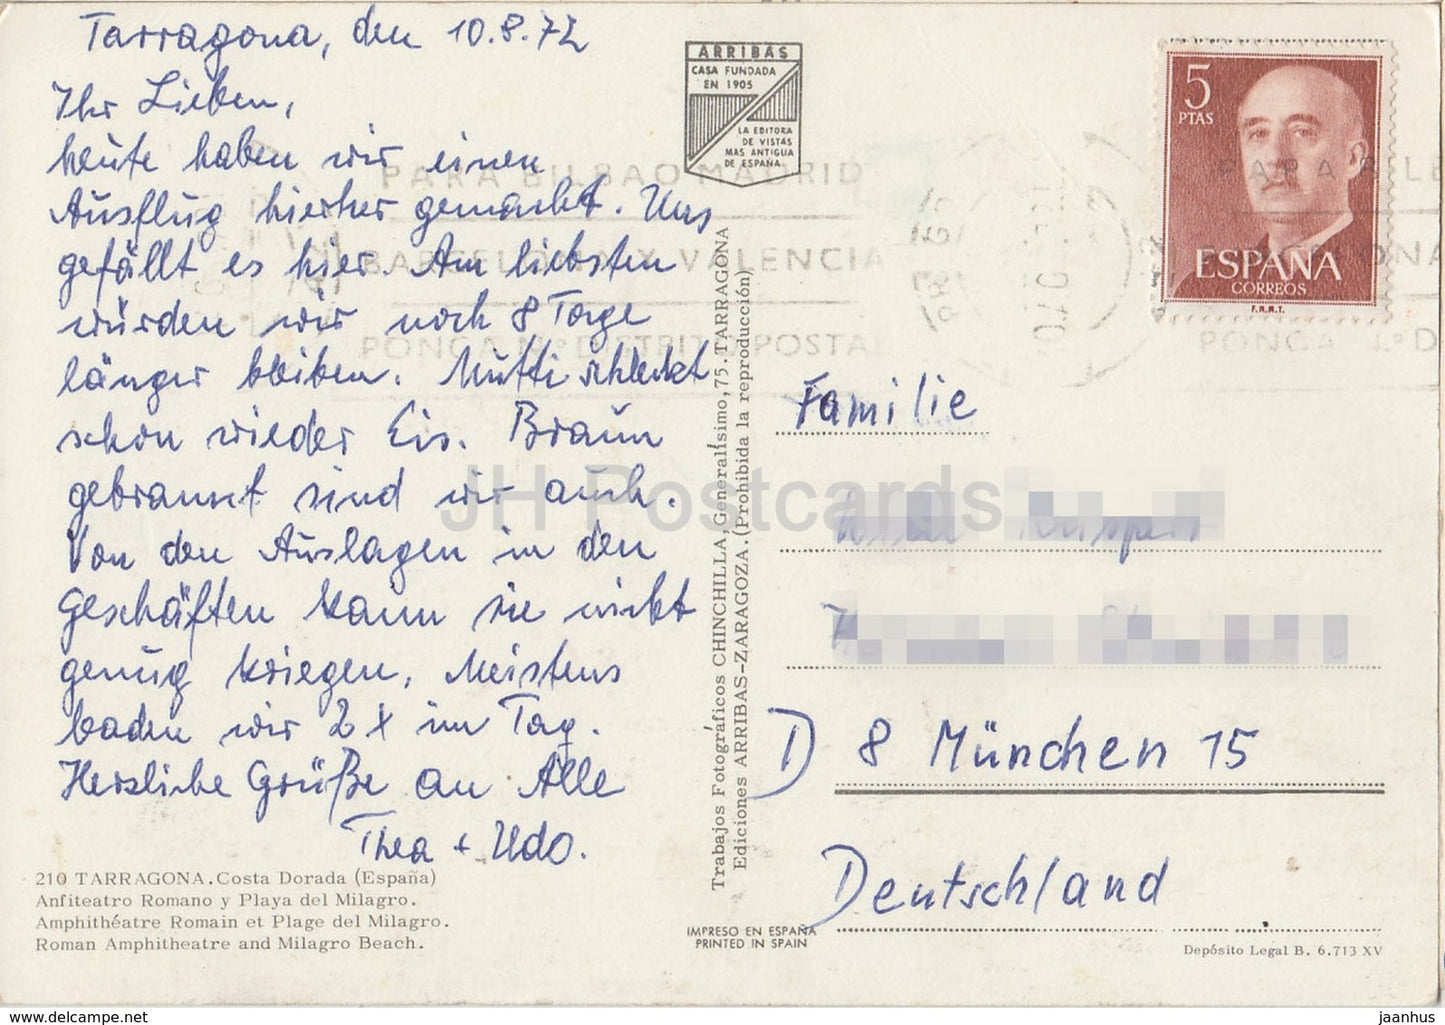 Tarragona, den 10.8.72
Ihr Lieben,
heute haben wir einen
Ausflug hierher gemacht. Uns
gefällt es hier. Am liebsten
würden wir noch 8 Tage
länger bleiben. Mutti schleckt
schon wieder Eis. Braun
gebrannt sind wir auch.
Von den Auslagen in den
Geschäften kann sie nicht
genug kriegen. Meistens
baden wir 2 x im Tag.
Herzliche Grüße an Alle
Thea + Udo.
210 TARRAGONA. Costa Dorada (España)
Anfiteatro Romano y Playa del Milagro.
Amphithéatre Romain et Plage del Milagro.
Roman Amphitheatre and Milagro Beach.
ARRIBAS
CASA FUNDADA
EN 1905
LA EDITORA
DE VISTAS
MAS ANTIGUA
DE ESPAÑA
Trabajos Fotográficos CHINCHILLA, Generalísimo, 75. TARRAGONA
Ediciones ARRIBAS-ZARAGOZA. (Prohibida la reproducción)
IMPRESO EN ESPAÑA
PRINTED IN SPAIN
5
PTAS
ESPAÑA
CORREOS
F.N.M.T.
PARA BILBAO MADRID
BARCELONA Y VALENCIA
PONGA Nº DISTRITO POSTAL
Familie
D 8 München 15
Deutschland
Depósito Legal B. 6.713 XV
JH Postcards
hippostcard.com
jaanhus